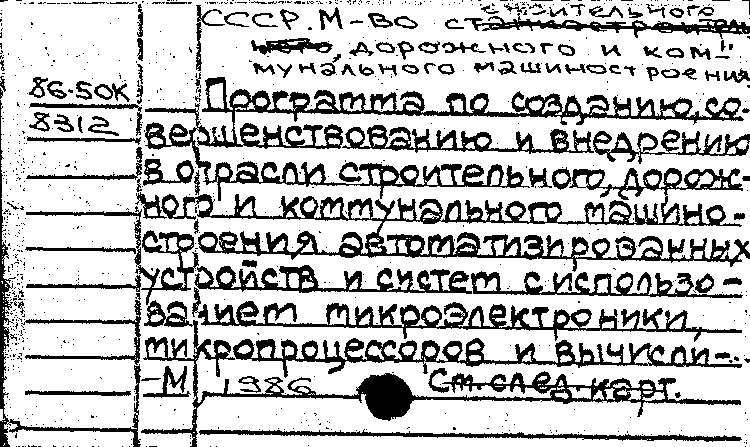 строительного
СССР. М-во станкостроитель
ного, дорожного и ком-
мунального машиностроения
86-50К Программа по созданию, со-
8312 вершенствованию и внедрению
в отрасли строительного, дорож-
ного и коммунального машино-
строения автоматизированных
устройств и систем с использо-
ванием микроэлектроники,
микропроцессоров и вычисли-
-М 1986 См. след. карт.